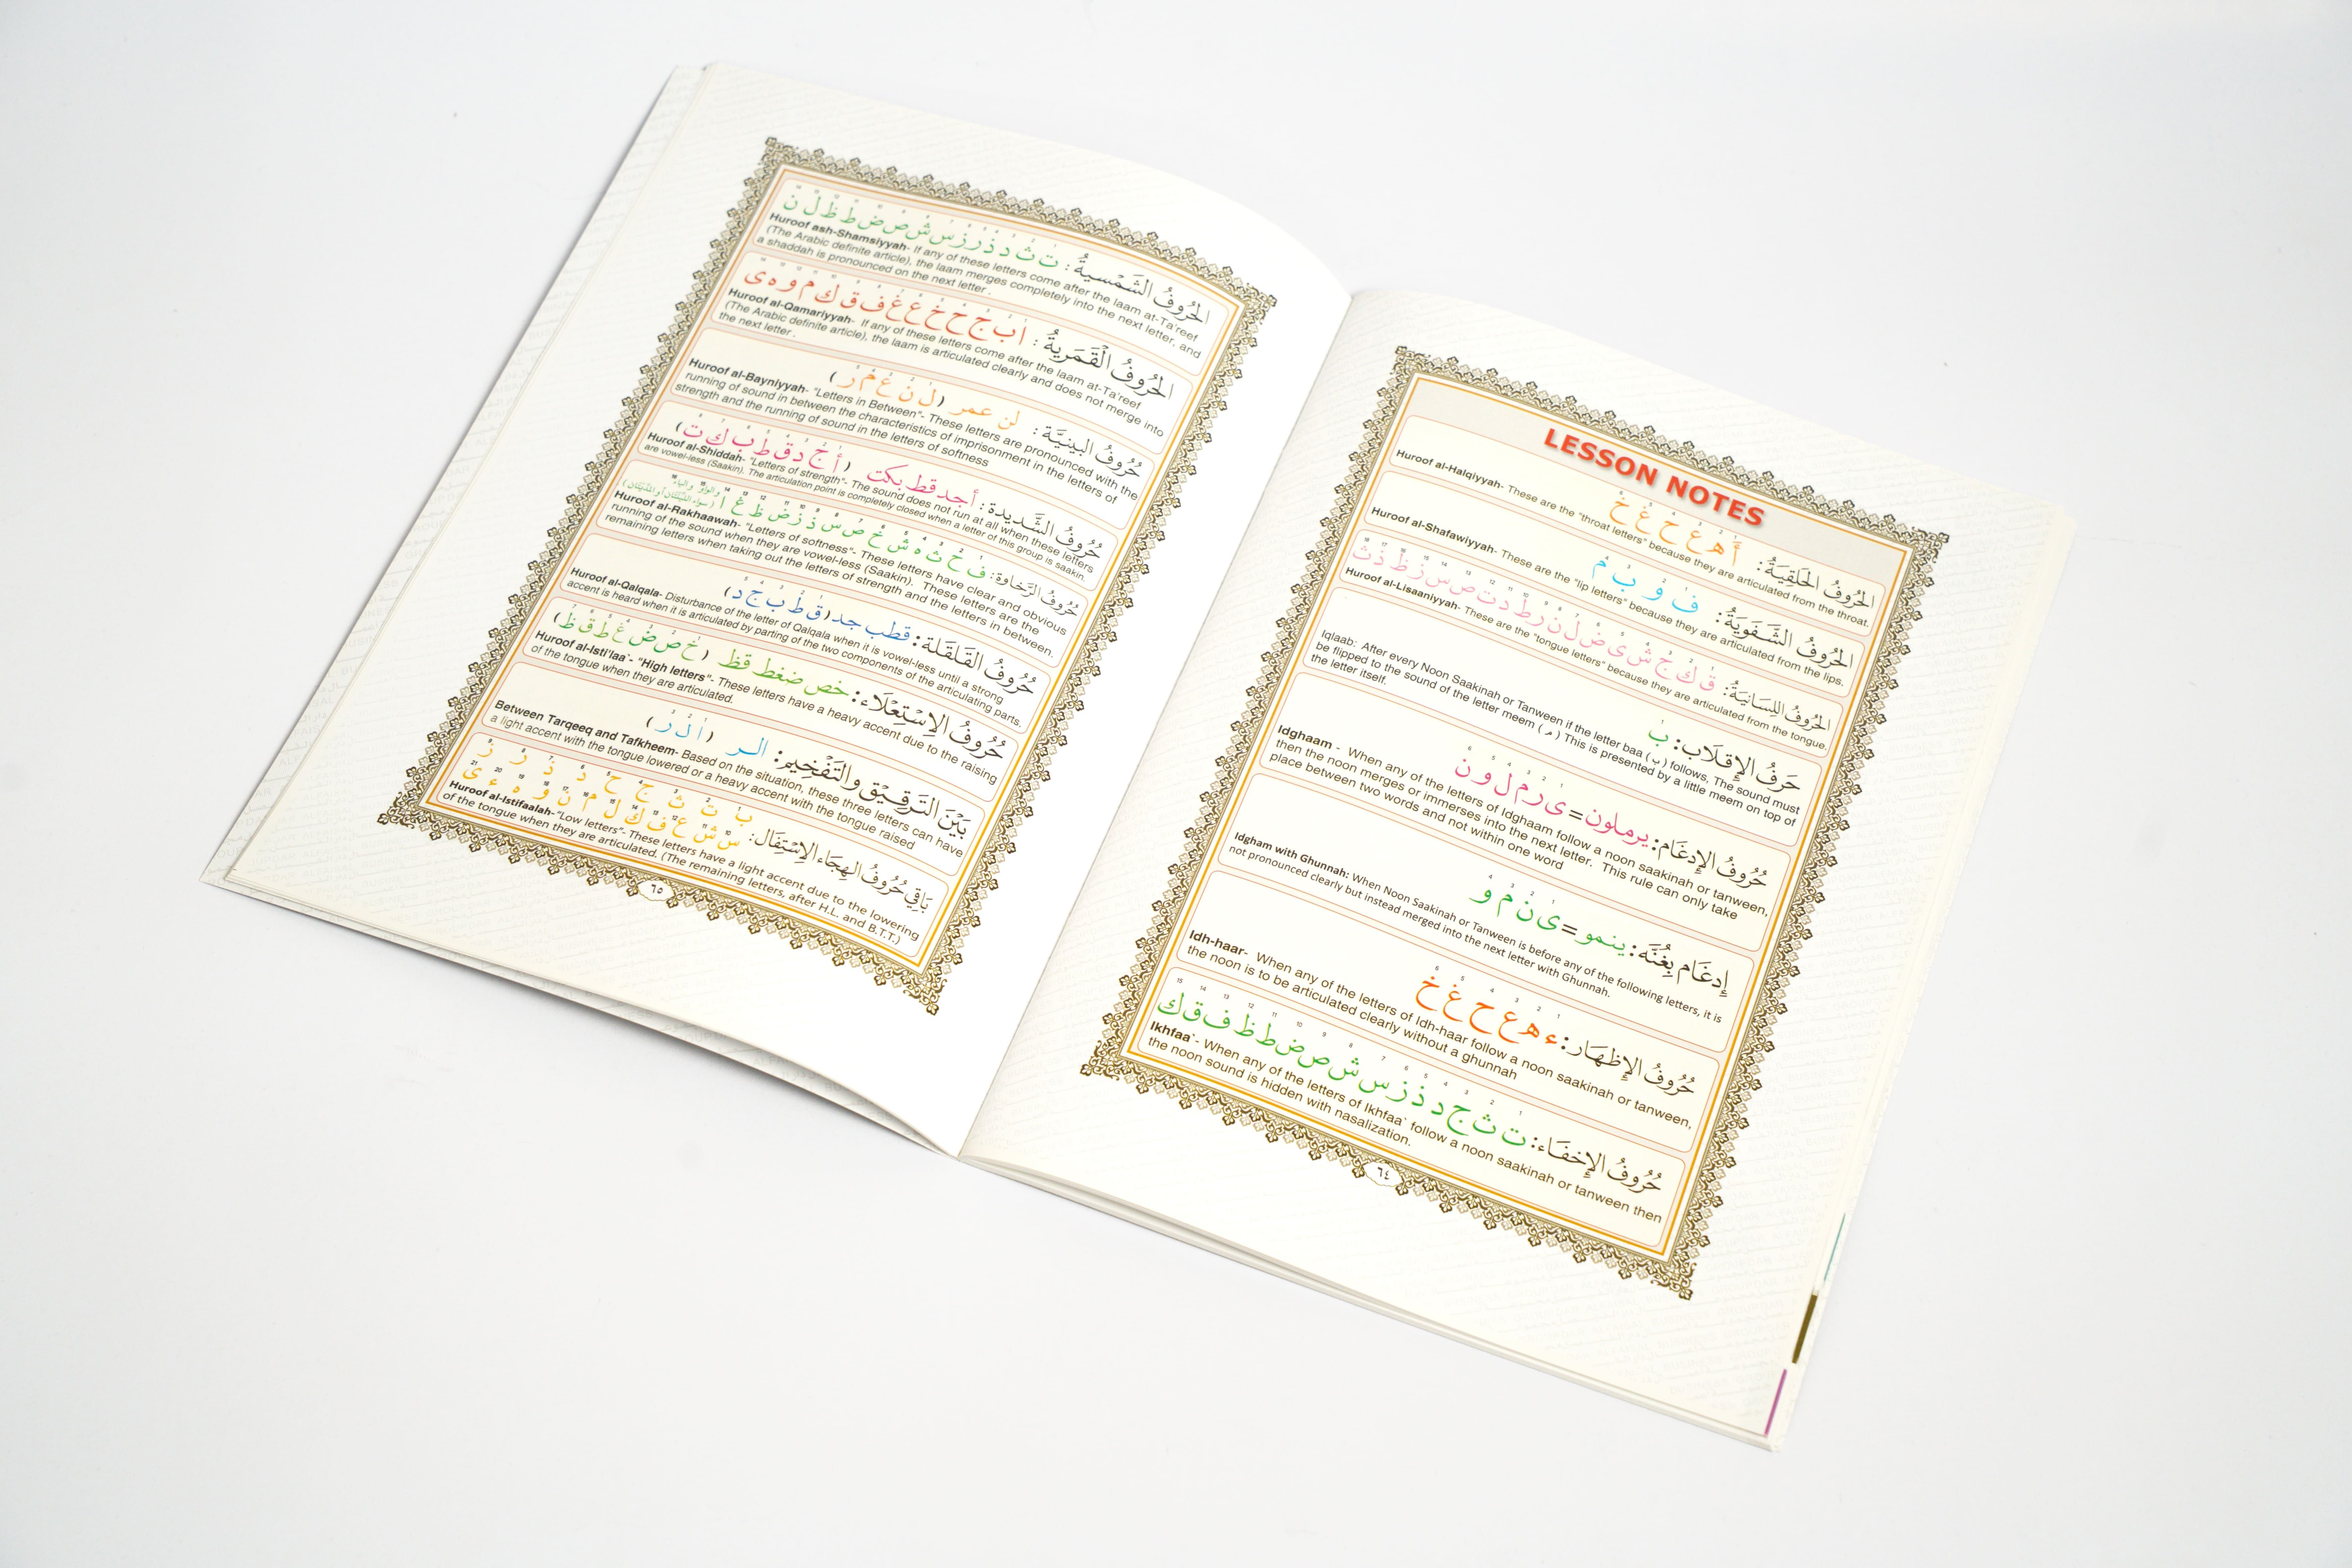 LESSON NOTES
الحُرُوفُ الحَلقِيَةُ : أ هـ ع ح غ خ
Huroof al-Halqiyyah- These are the "throat letters" because they are articulated from the throat.
الحُرُوفُ الشَّفَوِيَةُ : ف و ب م
Huroof al-Shafawiyyah- These are the "lip letters" because they are articulated from the lips.
الحُرُوفُ اللِّسَانِيَةُ : ق ك ج ش ى ض ل ن ر ط د ت ص س ز ظ ذ ث
Huroof al-Lisaaniyyah- These are the "tongue letters" because they are articulated from the tongue.
حَرفُ الإِقلَاب: ب
Iqlaab: After every Noon Saakinah or Tanween if the letter baa (ب) follows, The sound must
be flipped to the sound of the letter meem (م) This is presented by a little meem on top of
the letter itself.
حُرُوفُ الإِدغَام: يرملون = ى ر م ل و ن
Idghaam - When any of the letters of Idghaam follow a noon saakinah or tanween,
then the noon merges or immerses into the next letter. This rule can only take
place between two words and not within one word
إِدغَام بِغُنَّه: ينمو = ى ن م و
Idgham with Ghunnah: When Noon Saakinah or Tanween is before any of the following letters, it is
not pronounced clearly but instead merged into the next letter with Ghunnah.
حُرُوفُ الإِظهَار: ء هـ ع ح غ خ
Idh-haar- When any of the letters of Idh-haar follow a noon saakinah or tanween,
the noon is to be articulated clearly without a ghunnah
حُرُوفُ الإِخفَاء: ت ث ج د ذ ز س ش ص ض ط ظ ف ق ك
Ikhfaa`- When any of the letters of Ikhfaa` follow a noon saakinah or tanween then
the noon sound is hidden with nasalization.
٦٤
الحُرُوفُ الشَّمْسِيةُ : ت ث د ذ ر ز س ش ص ض ط ظ ل ن
Huroof ash-Shamsiyyah- If any of these letters come after the laam at-Ta'reef
(The Arabic definite article), the laam merges completely into the next letter, and
a shaddah is pronounced on the next letter .
الحُرُوفُ الْقَمَرِيةُ : ا ب ج ح خ ع غ ف ق ك م و ه ى
Huroof al-Qamariyyah- If any of these letters come after the laam at-Ta'reef
(The Arabic definite article), the laam is articulated clearly and does not merge into
the next letter .
حُرُوفُ البينِيَّة : لن عمر ( ل ن ع م ر )
Huroof al-Bayniyyah- "Letters in Between"- These letters are pronounced with the
running of sound in between the characteristics of imprisonment in the letters of
strength and the running of sound in the letters of softness
حُرُوفُ الشَّدِيدة : أجد قط بكت ( أ ج د ق ط ب ك ت )
Huroof al-Shiddah- "Letters of strength"- The sound does not run at all when these letters
are vowel-less (Saakin). The articulation point is completely closed when a letter of this group is saakin.
حُرُوفُ الرَّخاوَة: ف ح ث ه ش خ ص س ذ ز ض ظ غ
Huroof al-Rakhaawah- "Letters of softness"- These letters have clear and obvious
running of the sound when they are vowel-less (Saakin). These letters are the
remaining letters when taking out the letters of strength and the letters in between.
حُرُوفُ القَلقَلة : قطب جد ( ق ط ب ج د )
Huroof al-Qalqala- Disturbance of the letter of Qalqala when it is vowel-less until a strong
accent is heard when it is articulated by parting of the two components of the articulating parts.
حُرُوفُ الإِسْتِعْلَاء: خص ضغط قظ ( خ ص ض غ ط ق ظ )
Huroof al-Isti'laa`- "High letters"- These letters have a heavy accent due to the raising
of the tongue when they are articulated.
بَيْنَ التَرقِيق وَالتَفْخِيم: الر ( ا ل ر )
Between Tarqeeq and Tafkheem- Based on the situation, these three letters can have
a light accent with the tongue lowered or a heavy accent with the tongue raised
بَاقِي حُرُوفُ الهِجَاء الإِسْتِفَال: ب ت ث ج ح د ذ ر ز
س ش ع ف ك ل م ن و ه ء ى
Huroof al-Istifaalah- "Low letters"- These letters have a light accent due to the lowering
of the tongue when they are articulated. (The remaining letters, after H.L. and B.T.T.)
٦٥